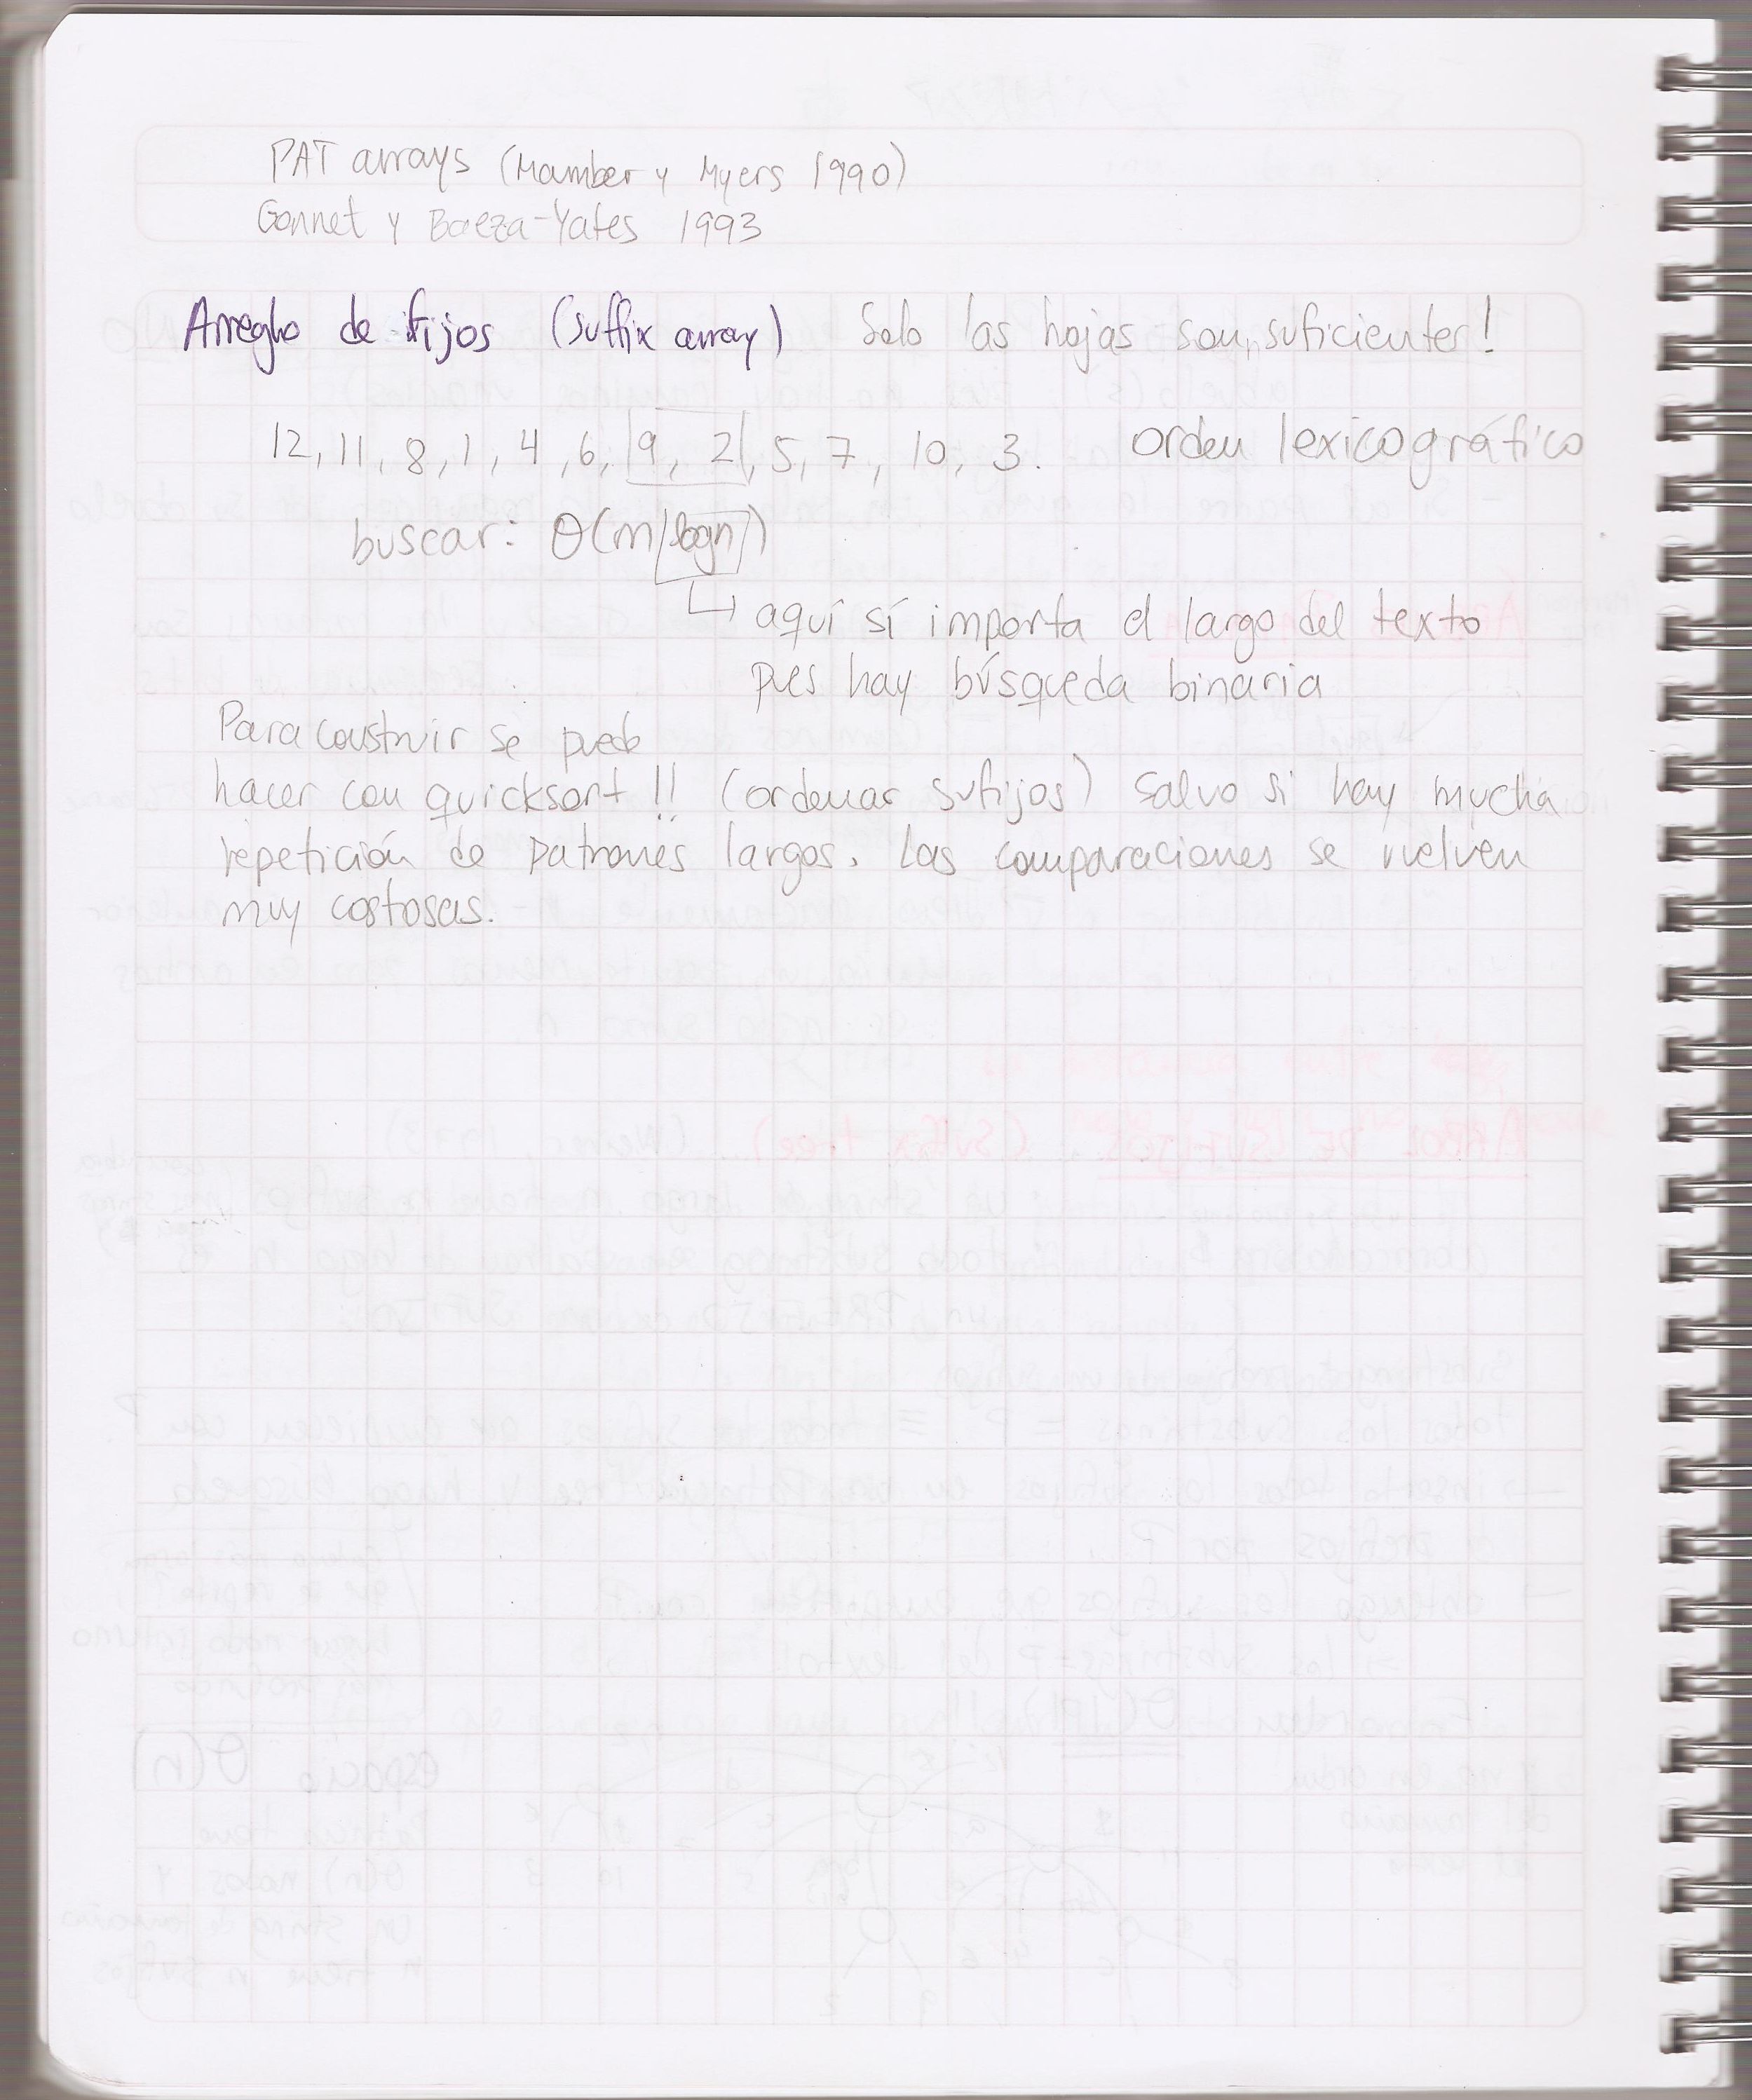 PAT arrays (Mamber y Myers 1990)
Gonnet y Baeza-Yates 1993
Arreglo de fijos (suffix array) Solo las hojas son suficientes!
12, 11, 8, 1, 4, 6, 9, 2, 5, 7, 10, 3. orden lexicográfico
buscar: O(m logn)
↳ aquí sí importa el largo del texto
pues hay búsqueda binaria
Para construir se puede
hacer con quicksort !! (ordenar sufijos) salvo si hay mucha
repetición de patrones largos. Las comparaciones se vuelven
muy costosas.